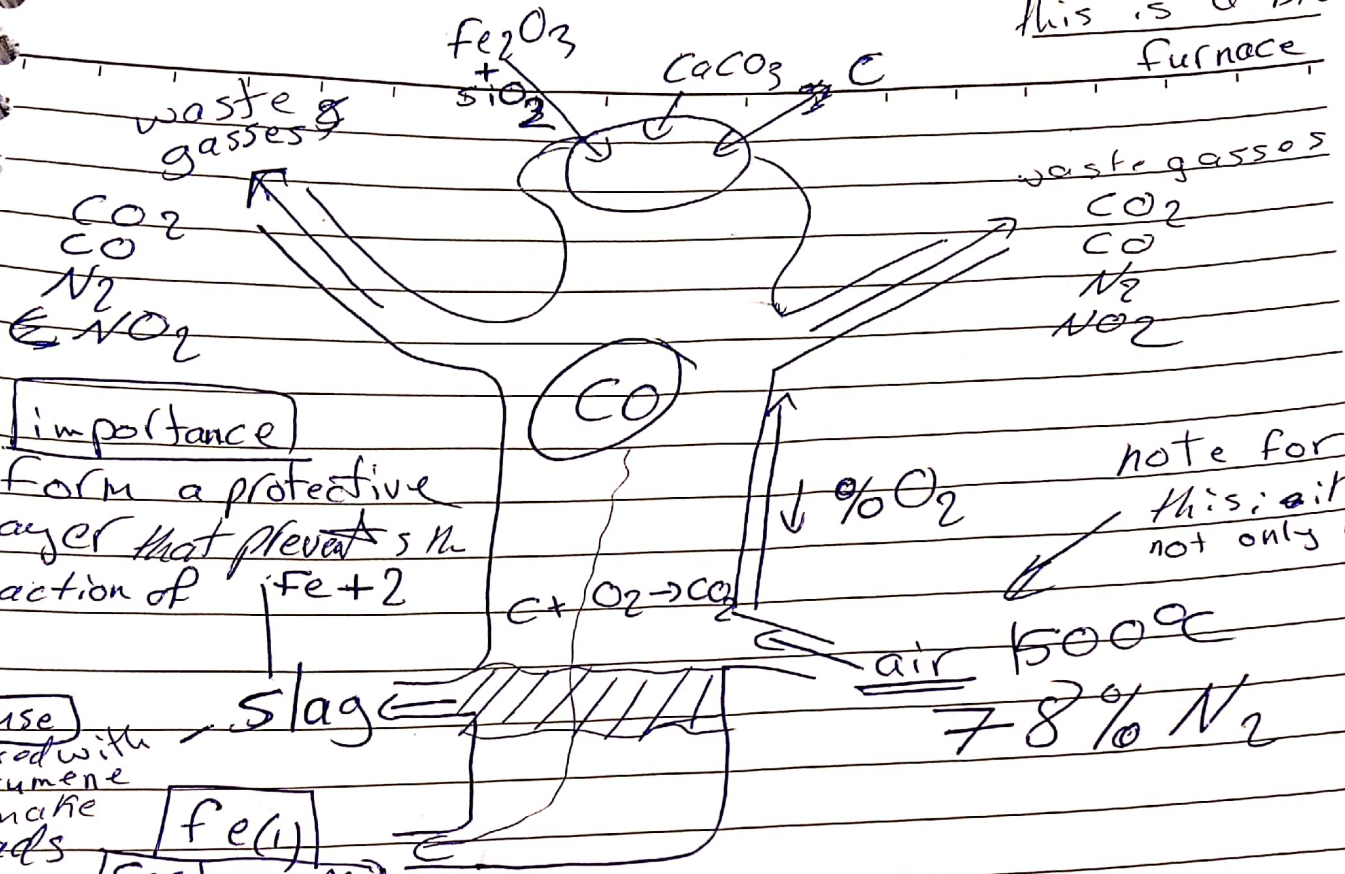 this is a
furnace
Fe2O3
+
SiO2
CaCO3
C
waste
gasses
CO2
CO
N2
NO2
waste gasses
CO2
CO
N2
NO2
CO
importance
form a protective
ayer that prevents th
action of Fe+2
↓ %O2
note for
this: air
not only
C+ O2→CO2
air 1500°C
78% N2
slag
use
with
umene
make
ads
fe(l)